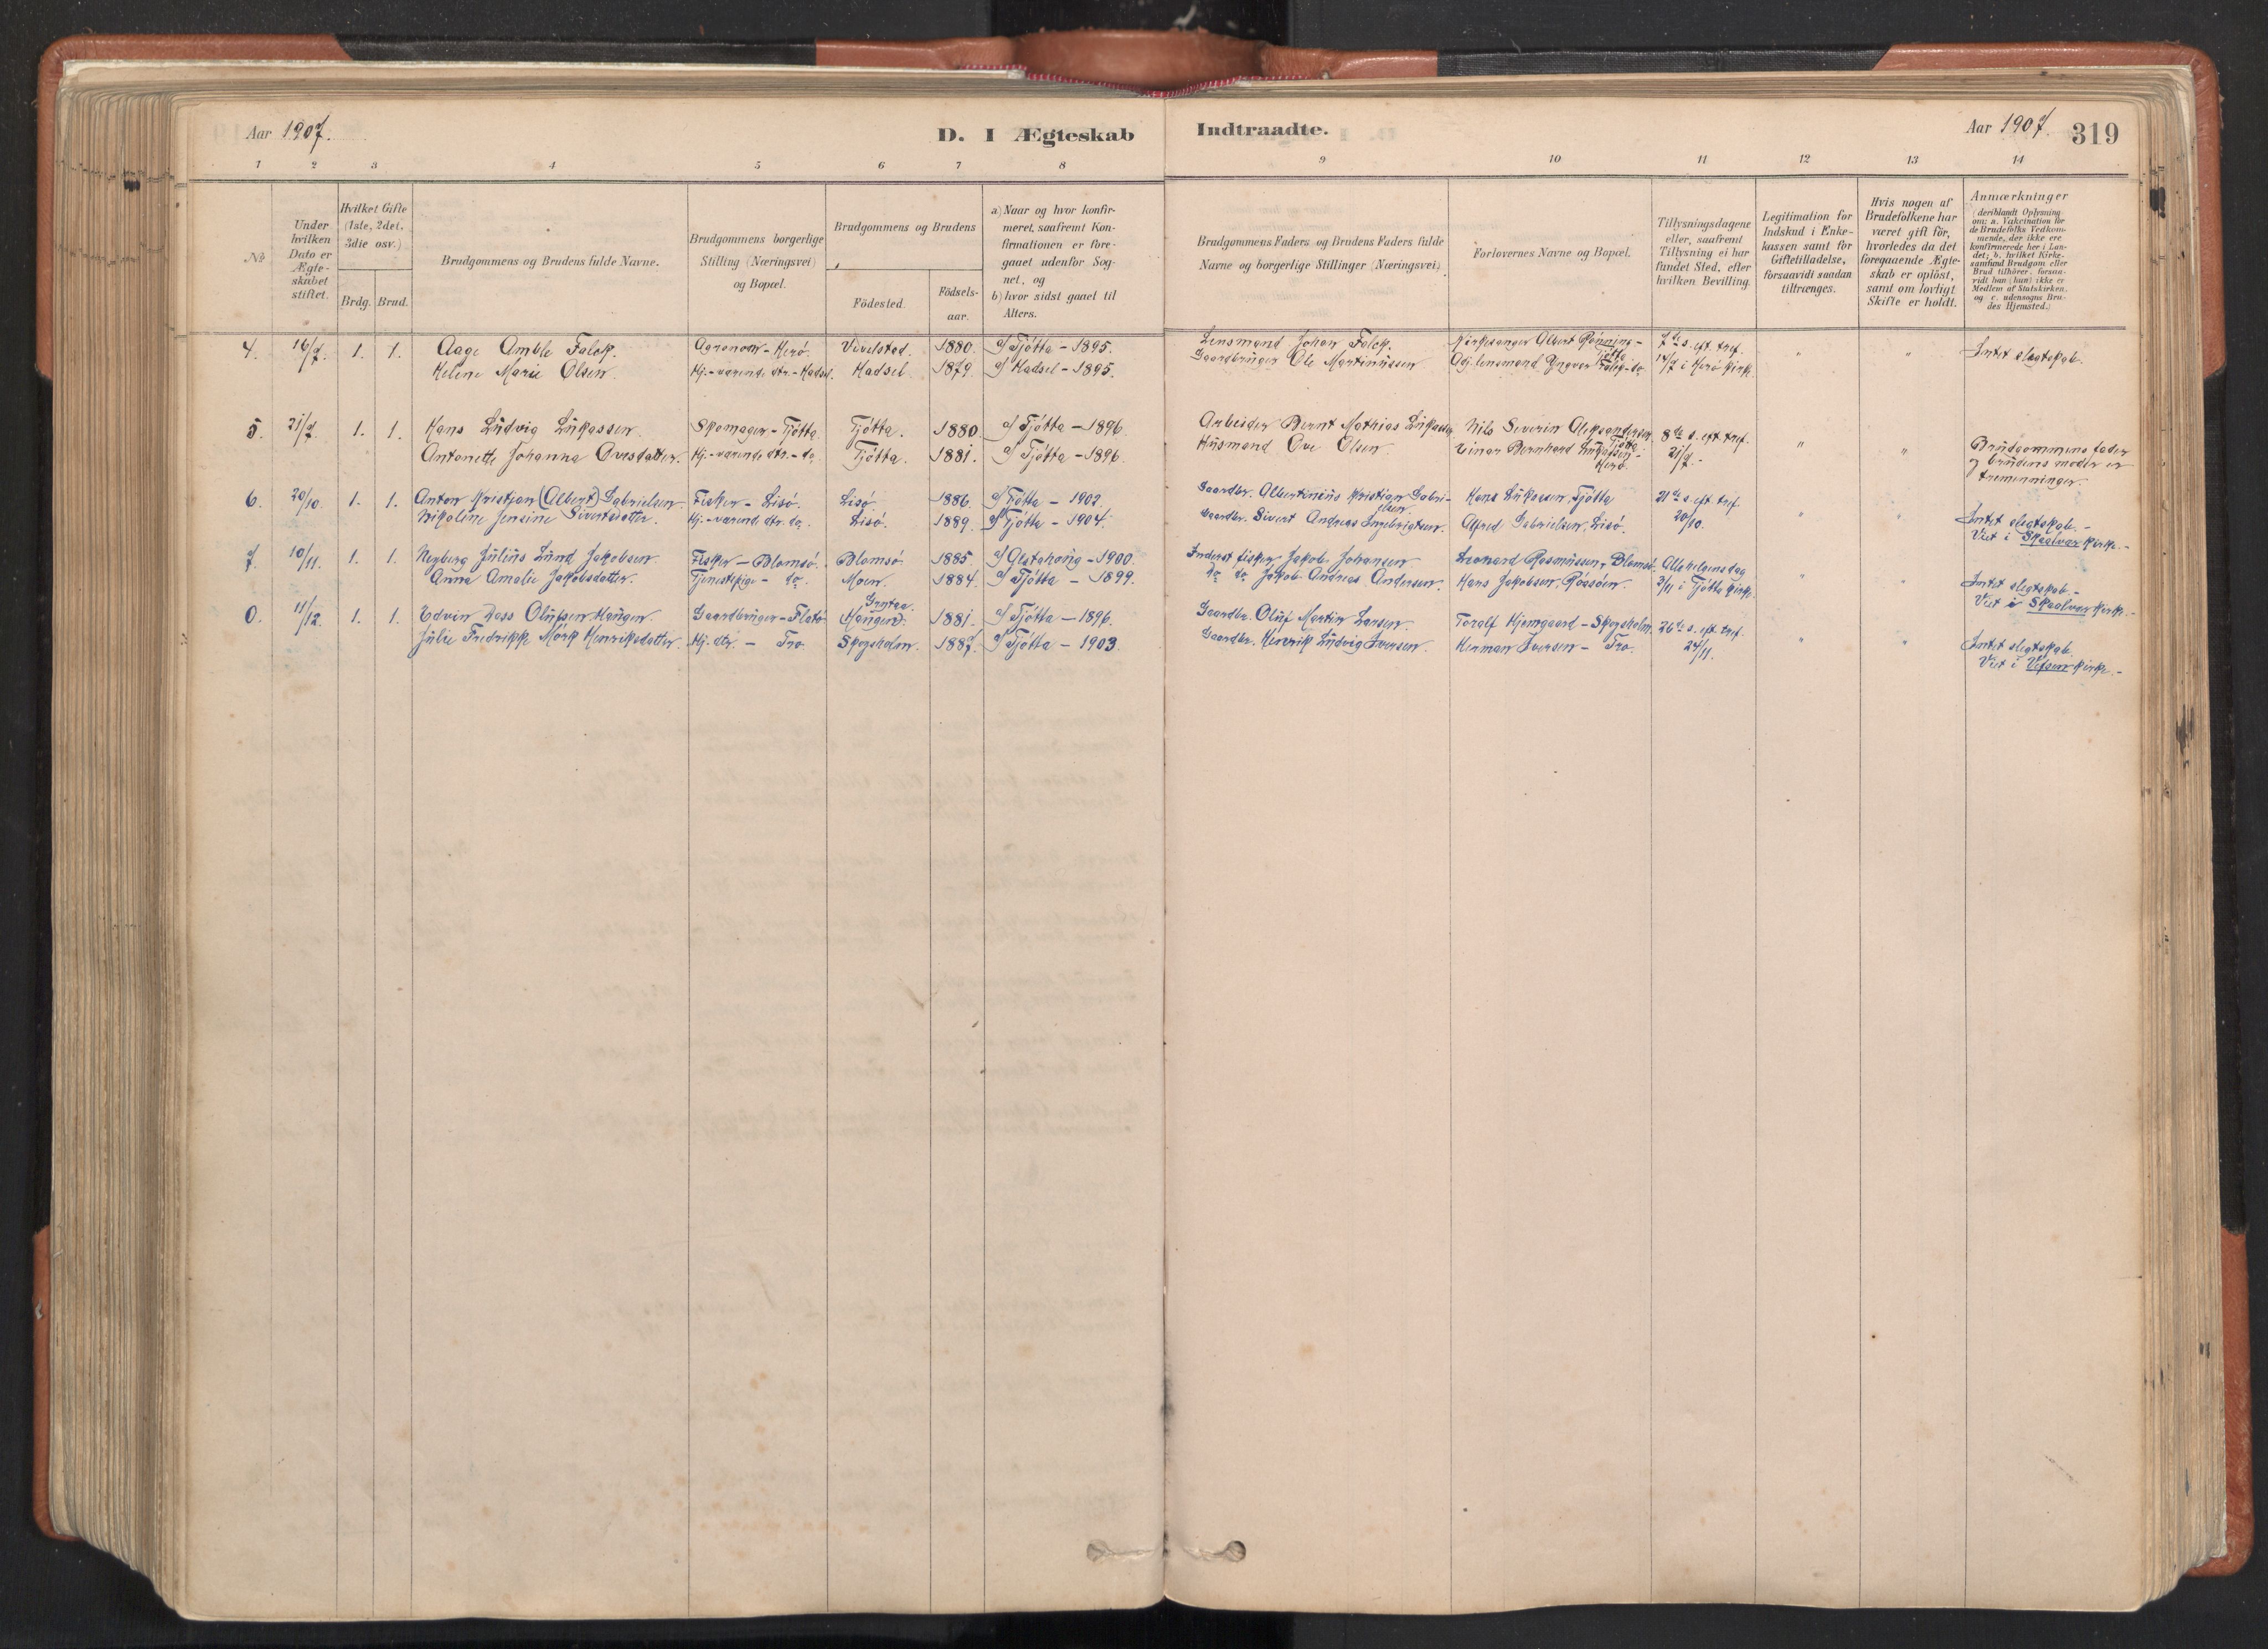 Aar 1907.
D. I Ægteskab
Indtraadte.
Aar 1907.
319
1 2 3 4 5 6 7 8 9 10 11 12 13 14
No
Under hvilken Dato er Ægteskabet stiftet.
Hvilket Gifte (1ste, 2det, 3die osv.)
Brdg. Brud.
Brudgommens og Brudens fulde Navne.
Brudgommens borgerlige Stilling (Næringsvei) og Bopæl.
Brudgommens og Brudens
Födested.
Födselsaar.
a) Naar og hvor konfirmeret, saafremt Konfirmationen er foregaaet udenfor Sognet, og
b) hvor sidst gaaet til Alters.
Brudgommens Faders og Brudens Faders fulde Navne og borgerlige Stillinger (Næringsvei)
Forlovernes Navne og Bopæl.
Tillysningsdagene eller, saafremt Tillysning ei har fundet Sted, efter hvilken Bevilling.
Legitimation for Indskud i Enkekassen samt for Giftetilladelse, forsaavidt saadan tiltrænges.
Hvis nogen af Brudefolkene har været gift för, hvorledes da det foregaaende Ægteskab er oplöst, samt om lovligt Skifte er holdt.
Anmærkninger
(deriblandt Oplysning om: a. Vakcination for de Brudefolks Vedkommende, der ikke ere konfirmerede her i Landet; b. hvilket Kirkesamfund Brudgom eller Brud tilhörer, forsaavidt han (hun) ikke er Medlem af Statskirken, og c. udensogns Brudes Hjemsted.)
4. 16/7. 1. 1. Aage Amble Falck. Agronom - Herö. Vevelstad. 1880. a/ Tjötta - 1895. Lensmand Johan Falck. Kirkesanger Albert Rönning - Tjötta 7de s. eft. tref. " " Intet slegtskab.
Helene Marie Olsen. Hj.-værende dtr. - Hadsel. Hadsel. 1879. a/ Hadsel - 1895. Gaardbruger Ole Martinussen Obj. lensmand Yngvar Falck - do 14/7 i Herö kirke.
5. 21/7. 1. 1. Hans Ludvig Lukassen. Skomager - Tjötta. Tjötta. 1880. a/ Tjötta - 1896. Arbeider Bernt Mathias Lukassen Nils Severin Aleksandersen Tjötta 8de s. eft. tref. " "
Antonette Johanna Ovesdatter. Hj.-værende dtr. - do. Tjötta. 1881. a/ Tjötta - 1896. Husmand Ove Olsen. Einar Bernhard Lukassen - Herö. 21/7. - Brudgommens fader og brudens moder er tremenninger.
6. 20/10. 1. 1. Anton Kristjan (Albert) Gabrielsen. Fisker - Lisö. Lisö. 1886. a/ Tjötta - 1902. Gaardbr. Albertinius Kristian Gabrielsen. Hans Lukassen, Tjötta 21de s. eft. tref. " "
Nikoline Jensine Sivertsdatter. Hj.-værende dtr. do. Lisö. 1889. a/ Tjötta - 1904. Gaardbr. Sivert Andreas Ingebrigtsen. Alfred Gabrielsen, Lisö. 20/10. Intet slegtskab. - Viet i Skaalvær kirke. -
7. 10/11. 1. 1. Nyberg Julius Lund Jakobsen. Fisker - Blomsö. Blomsö. 1885. a/ Alstahoug - 1900. Inderst fisker Jakob Johansen Leonard Rasmussen, Blomsö. Allehelgensdag " "
Anna Amalie Jakobsdatter. Tjenestepige - do. Moen. 1884. a/ Tjötta - 1899. do do Jakob Andreas Andersen. Hans Jakobsen, Rössöen. 3/11 i Tjötta kirke. Intet slegtskab. - Viet i Skaalvær kirke. -
0. 11/12. 1. 1. Edvin Dass Olufsen Hauger. Gaardbruger - Flatö. Grytaa. Hauger. 1881. a/ Tjötta - 1896. Gaardbr. Oluf Martin Larsen. Toralf Hjemgaard - Skogsholm. 26de s. eft. tref. " "
Julie Fredrikke Mörk Henriksdatter. Hj. dtr. - Tro. Skogsholm. 1887. a/ Tjötta - 1903. Gaardbr. Henrik Ludvig Iversen. Herman Iversen - Tro. 24/11. Intet slegtskab. Viet i Vefsen kirke. -